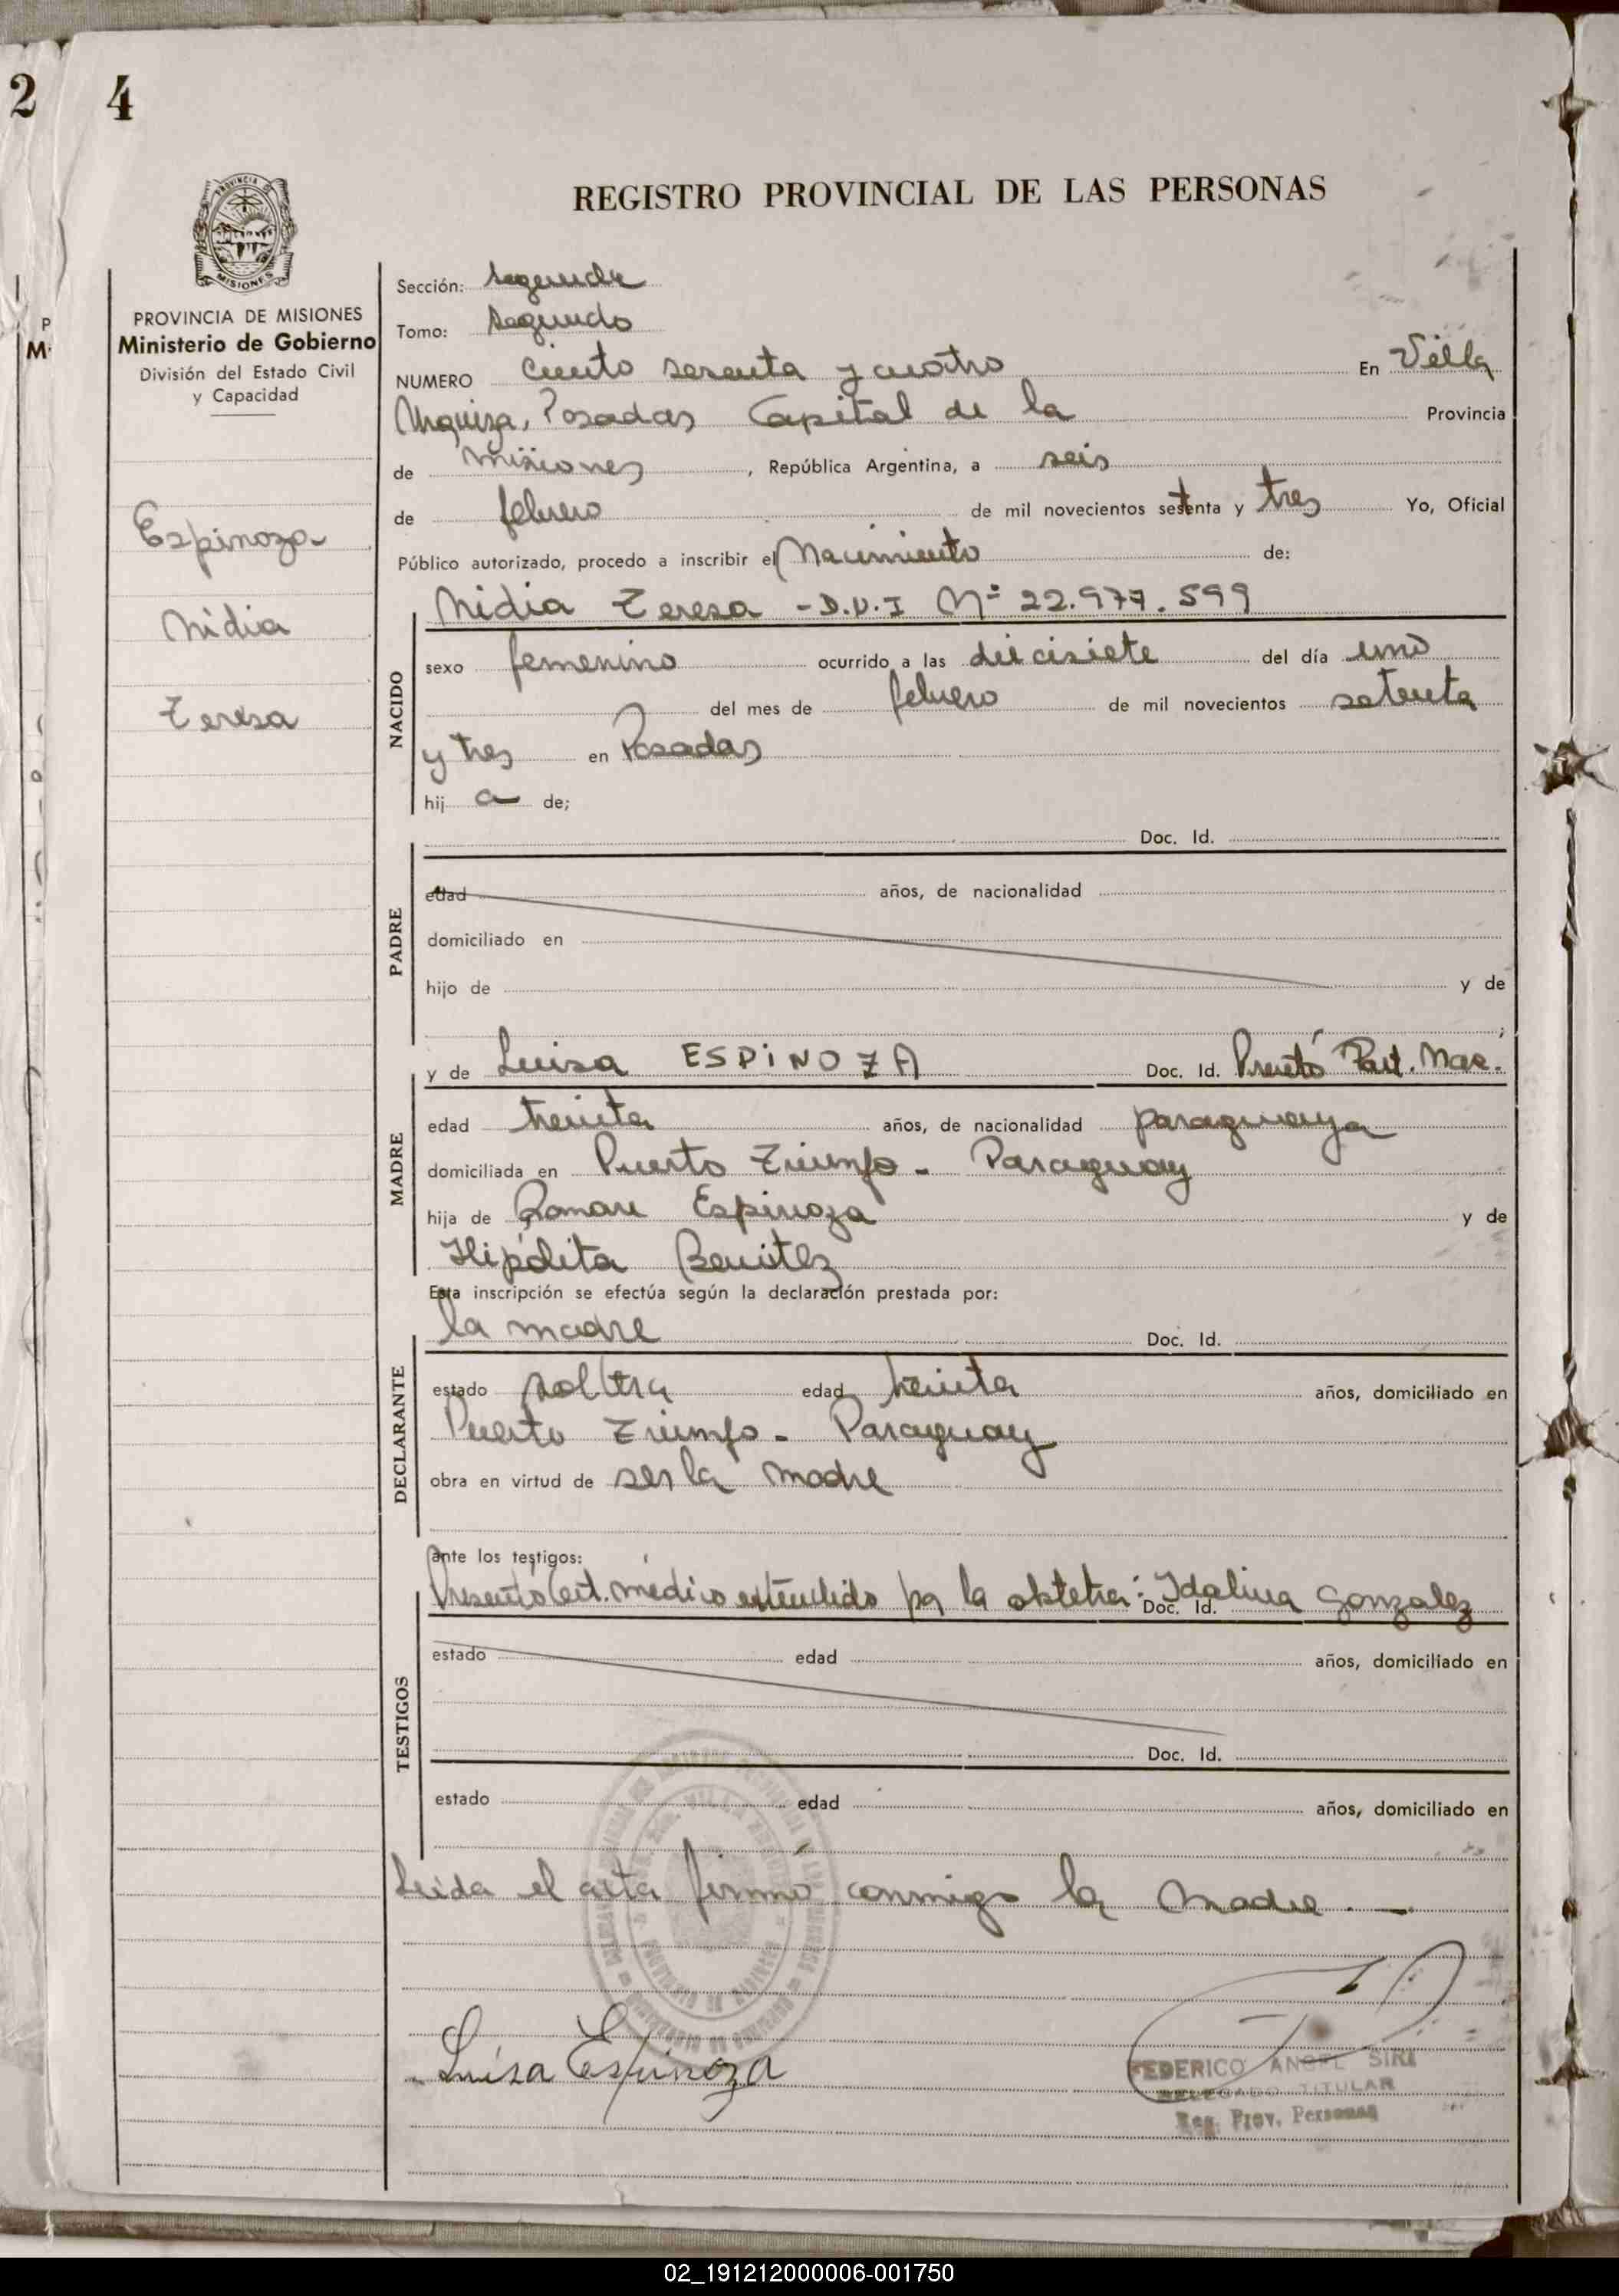 2 4
REGISTRO PROVINCIAL DE LAS PERSONAS
PROVINCIA DE MISIONES
MISIONES
PROVINCIA DE MISIONES
Ministerio de Gobierno
División del Estado Civil
y Capacidad
Espinoza
Nidia
Teresa
Sección: segunda
Tomo: segundo
NUMERO ciento sesenta y cuatro En Villa
Urquiza, Posadas Capital de la Provincia
de misiones, República Argentina, a seis
de febrero de mil novecientos setenta y tres Yo, Oficial
Público autorizado, procedo a inscribir el Nacimiento de:
Nidia Teresa - D.N.I Nº 22.977.599
NACIDO
sexo femenino ocurrido a las diecisiete del día uno
del mes de febrero de mil novecientos setenta
y tres en Posadas
hij a de;
PADRE
Doc. Id.
edad años, de nacionalidad
domiciliado en
hijo de y de
;
MADRE
y de Luisa ESPINOZA Doc. Id. Presentó Part. Nac.
edad treinta años, de nacionalidad paraguaya
domiciliada en Puerto Triunfo - Paraguay
hija de Roman Espinoza y de
Hipólita Benitez
Esta inscripción se efectúa según la declaración prestada por:
DECLARANTE
la madre Doc. Id.
estado soltera edad treinta años, domiciliado en
Puerto Triunfo - Paraguay
obra en virtud de ser la madre
ante los testigos:
TESTIGOS
Presentó Cert. médico extendido por la obstetra: Idalina Gonzalez
Doc. Id.
estado edad años, domiciliado en
Doc. Id.
estado edad años, domiciliado en
Leida el acta firmó conmigo la madre. —
Luisa Espinoza
FEDERICO ANGEL SIRI
DELEGADO TITULAR
Reg. Prov. Personas
02_191212000006-001750